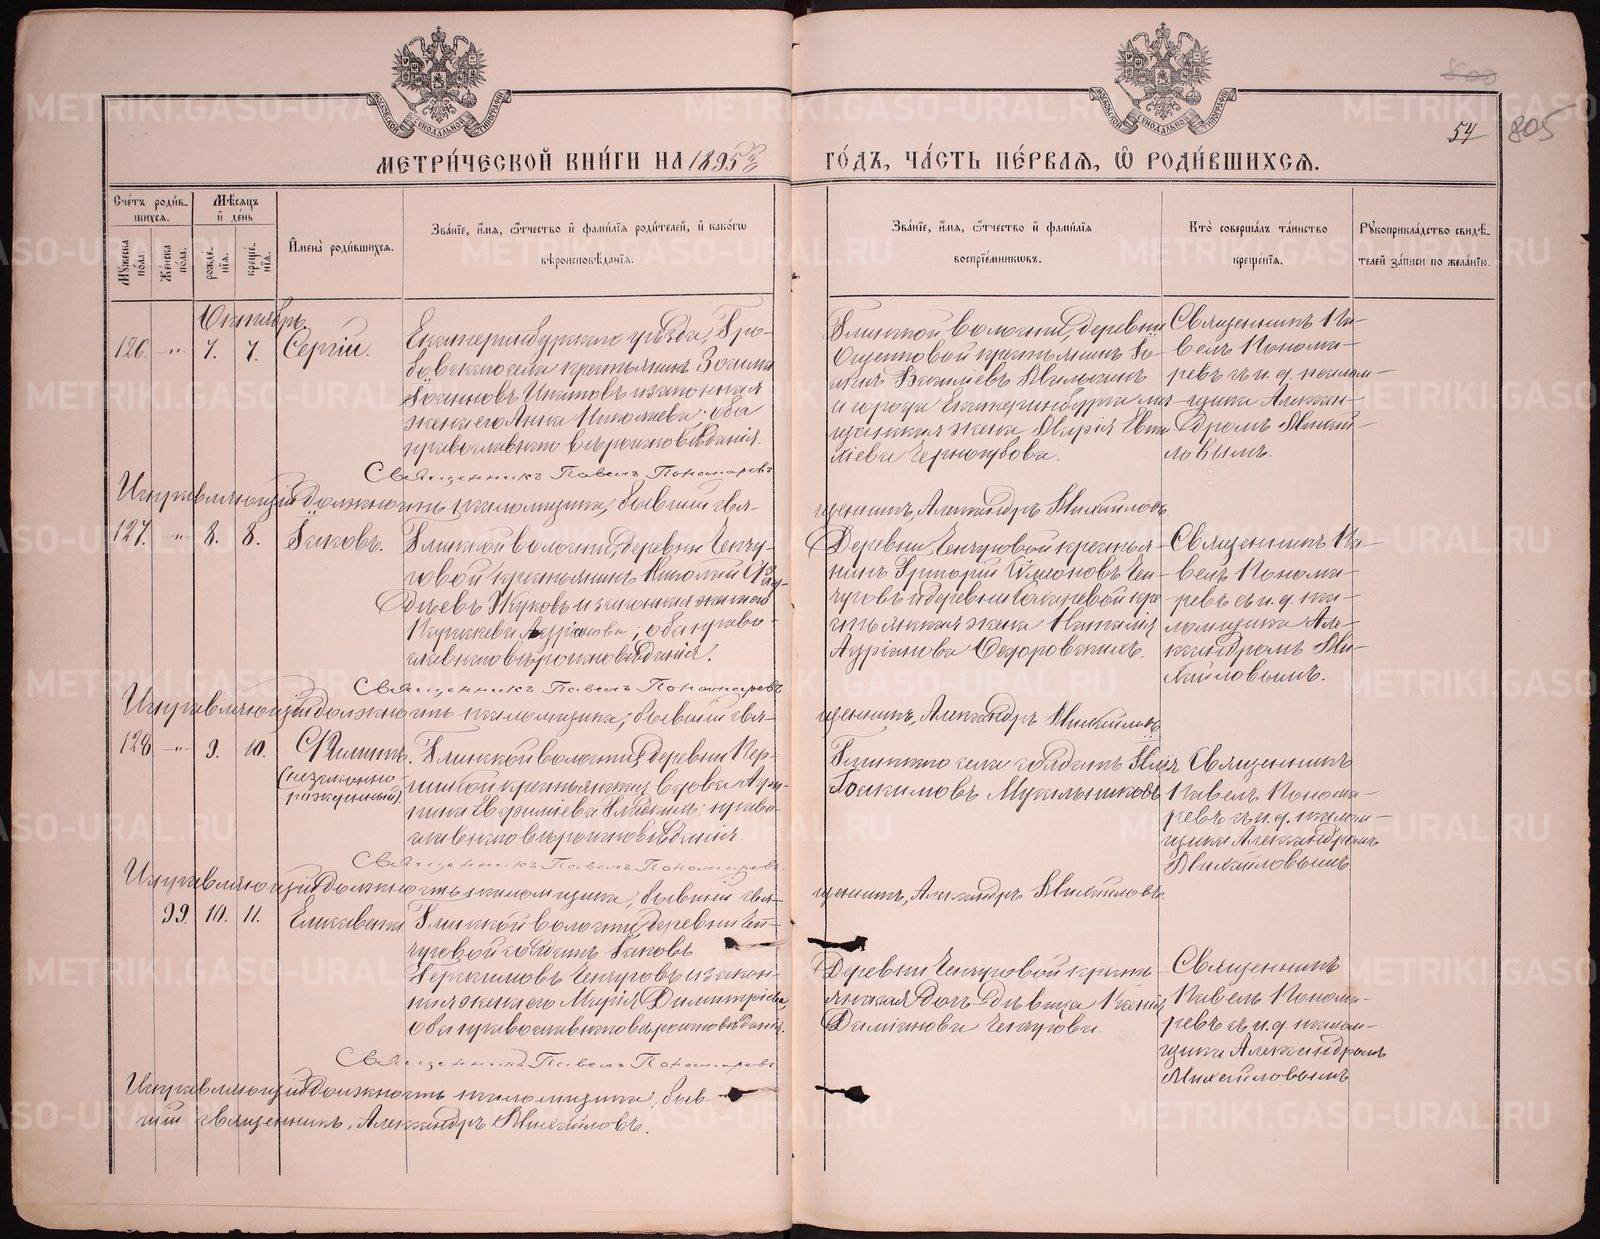 МЕТРИ́ЧЕСКОЙ КНИ́ГИ НА 1895й
ГО́ДЪ, ЧА́СТЬ ПЕ́РВАЯ, Ѡ҆ РОДИ́ВШИХСЯ.
54 805
Сче́тъ роди́в-
шихся.
Мѣ́сяцъ
и҆ де́нь
Мꙋ́жеска по́ла.
Же́нска по́ла.
рожде́-
нїѧ.
креще́-
нїѧ.
И҆мена̀ роди́вшихся.
Зва́нїе, и҆́мѧ, ѻ҆́тчество и҆ фамѝлїѧ роди́телей, и҆ како́гѡ
вѣроисповѣ́данїѧ.
Зва́нїе, и҆́мѧ, ѻ҆́тчество и҆ фамѝлїѧ
воспрїе́мникѡвъ.
Кто̀ соверша́лъ та́инство
креще́нїѧ.
Рꙋкоприкла́дство свидѣ́-
телей за́писи по жела́нїю.
Октябрь.
126. -"- 7. 7. Сергій.
Екатеринбургскаго уѣзда, Гро-
бовскаго села крестьянинъ Зосима
Іоанновъ и законная
жена его Анна Николаева; оба
православнаго вѣроисповѣданія.
Глинской волости, деревни
Ощепковой крестьянинъ
Василіевъ
и города Екатеринбурга мѣ-
щанская жена Марія
Черногубова.
Священникъ Па-
велъ Понома-
ревъ съ и. д. псалом-
щика Алексан-
дромъ Михай-
ловымъ.
Священникъ Павелъ Пономаревъ
Исправляющій должность псаломщика, бывшій свя-
щенникъ, Александръ Михайловъ.
127. -"- 8. 8. Іаковъ.
Глинской волости, деревни Ченчу-
говой крестьянинъ Николай
Жуковъ и законная жена его
Андріанова; оба право-
славнаго вѣроисповѣданія.
Деревни Ченчуговой крестья-
нинъ Григорій Симеоновъ Чен-
чуговъ и деревни Голендухиной кре-
стьянская жена Наталія
Адріанова Ѳедоровскихъ.
Священникъ Па-
велъ Понома-
ревъ съ и. д. пса-
ломщика Але-
ксандромъ Ми-
хайловымъ.
Священникъ Павелъ Пономаревъ
Исправляющій должность псаломщика, бывшій свя-
щенникъ, Александръ Михайловъ.
128. -"- 9. 10. Филиппъ.
(незаконно-
рожденный).
Глинской волости, деревни
крестьянская вдова Агри-
пина православнаго вѣроисповѣданія
Глинскаго села солдатъ Илія
Іоакимовъ Мусальниковъ
Священникъ
Павелъ Понома-
ревъ съ и. д. псалом-
щика Александромъ
Михайловымъ.
Священникъ Павелъ Пономаревъ.
Исправляющій должность псаломщика, бывшій свя-
щенникъ, Александръ Михайловъ.
99. 10. 11. Елисавета.
Глинской волости, деревни Чен-
чуговой солдатъ Іаковъ
Герасимовъ Ченчуговъ и закон-
ная жена его Марія Димитріева,
оба православнаго вѣроисповѣданія.
Деревни Ченчуговой кресть-
янская дочь дѣвица Ксенія
Даміанова Ченчугова.
Священникъ
Павелъ Понома-
ревъ съ и. д. псалом-
щика Александромъ
Михайловымъ
Священникъ Павелъ Пономаревъ
Исправляющій должность псаломщика, быв-
шій священникъ, Александръ Михайловъ.
METRIKI.GASO-URAL.RU